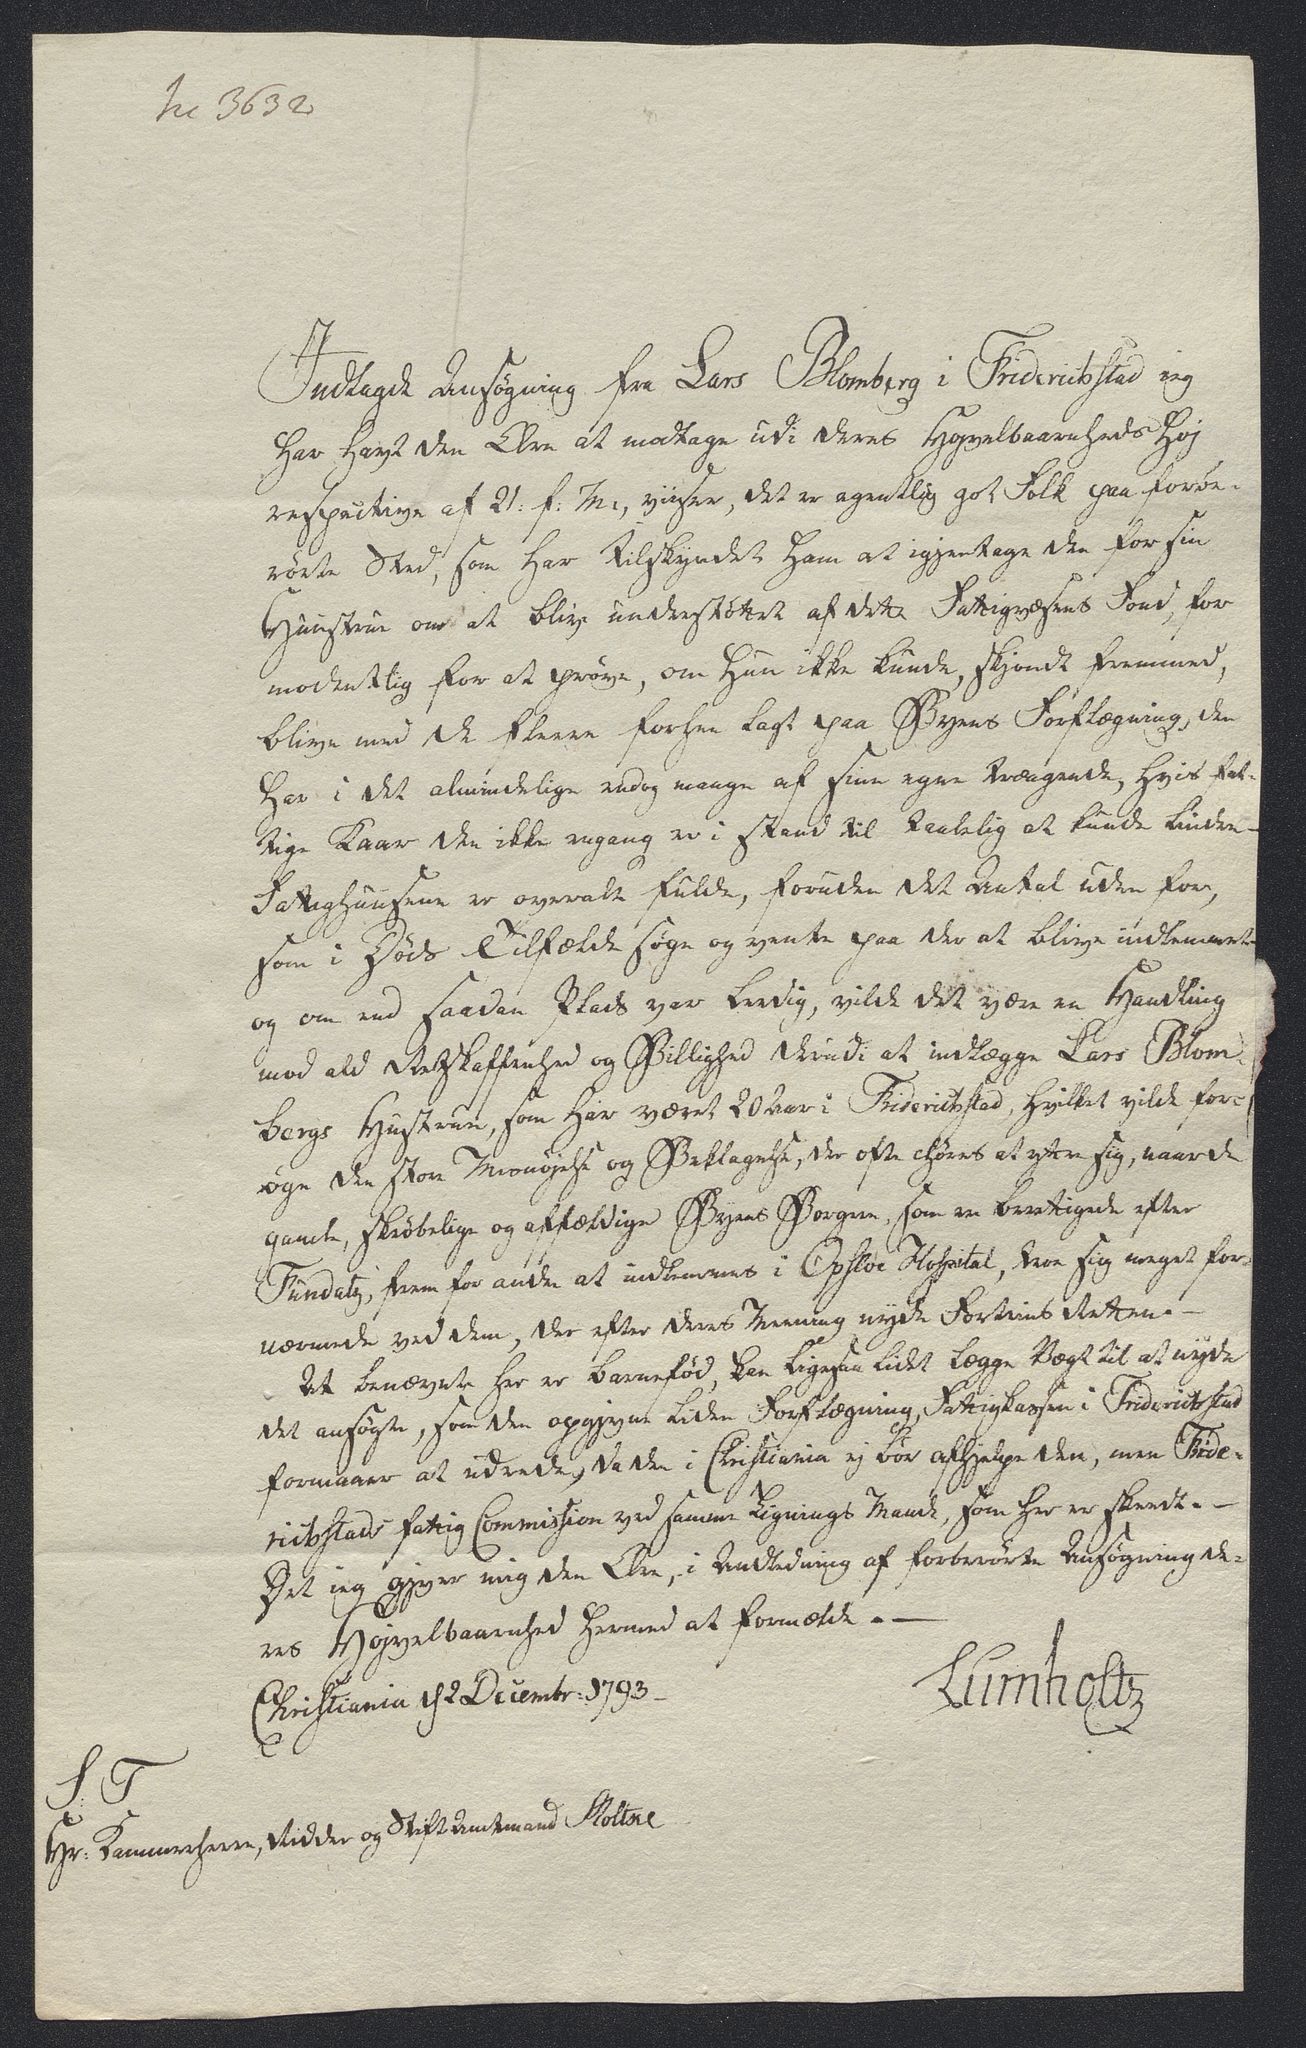 No 3632
Indlagde Ansøgning fra Lars Blomberg i Friderichstad ieg
har havt den Ære at modtage udi deres Høyvelbaarenheds Høj
respective af 21: f: M:, viiser, det er egentlig got Folk paa forbe-
rørte Sted, som har tilskyndet ham at igjentage den for sin
Huustrue om at blive understøttet af dette Fattigvæsens Fond, for
modentlig for at prøve, om hun ikke kunde, skjøndt fremmed,
blive med de fleere forhen lagt paa Byens Forflægning, den
har i det almindelige endog mange af sine egne trængende, hvis fat-
tige Kaar den ikke engang er i stand til taalelig at kunde lindre -
Fattighuusene er overalt fulde, foruden det Antal uden for,
som i Døds Tilfælde søge og vente paa der at blive indlemmet -
og om end saadan Plads var leedig, vilde det være en Handling
mod ald Retskaffenhed og Billighed derudi at indlægge Lars Blom-
bergs Hustrue, som har været 20 Aar i Friderichstad, hvilket vilde for-
øge den store Misnøjelse og Beklagelse, der ofte høres at yttre sig, naar de
gamle, skrøbelige og affældige Byens Borgere, som er berettigede efter
Fundatz, frem for andre at indlemmes i Opsloe Hospital, troe sig meget for-
nærmede ved dem, der efter deres Meening nyde Fortrins Retten. -
At benævnte her er barnefød, kan ligesaa lidet lægge Vægt til at nyde
det ansøgte, som den opgivne liden Forflægning, Fattigkassen i Friderichstad
formaaer at udrede, da den i Christiania ej bør afhjelpe den, men Fride-
richstads fattig Commission ved samme Lignings Maade, som her er skeedt. -
Det ieg giver mig den Ære, i Anledning af forberørte Ansøgning de-
res Høyvelbaarenhed hermed at formælde. -
Christiania d 2 Decembr: 1793 -
Lumholtz
S. T
Hr: Kammerherre, Ridder og Stiftamtmand Moltke